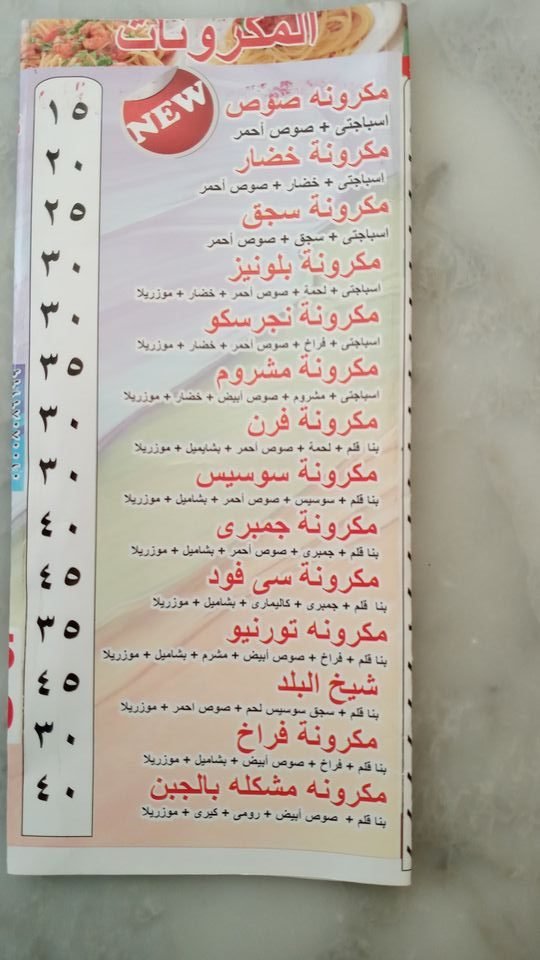 المكرونات
NEW
مكرونه صوص ١٥
اسباجتى + صوص أحمر
مكرونة خضار ٢٠
اسباجتى + خضار + صوص أحمر
مكرونة سجق ٢٥
اسباجتى + سجق + صوص أحمر
مكرونة بلونيز ٣٠
اسباجتى + لحمة + صوص أحمر + خضار + موزريلا
مكرونة نجرسكو ٣٠
اسباجتى + فراخ + صوص أحمر + خضار + موزريلا
مكرونة مشروم ٣٥
اسباجتى + مشروم + صوص أبيض + خضار + موزريلا
مكرونة فرن ٣٠
بنا قلم + لحمة + صوص أحمر + بشايميل + موزريلا
مكرونة سوسيس ٣٠
بنا قلم + سوسيس + صوص أحمر + بشاميل + موزريلا
مكرونة جمبرى ٤٠
بنا قلم + جمبرى + صوص أحمر + بشاميل + موزريلا
مكرونة سى فود ٤٥
بنا قلم + جمبرى + كاليمارى + بشاميل + موزريلا
مكرونه تورنيو ٣٥
بنا قلم + فراخ + صوص أبيض + مشرم + بشاميل + موزريلا
شيخ البلد ٤٥
بنا قلم + سجق سوسيس لحم + صوص احمر + موزريلا
مكرونة فراخ ٣٠
بنا قلم + فراخ + صوص أبيض + بشاميل + موزريلا
مكرونه مشكله بالجبن ٤٠
بنا قلم + صوص أبيض + رومى + كيرى + موزريلا